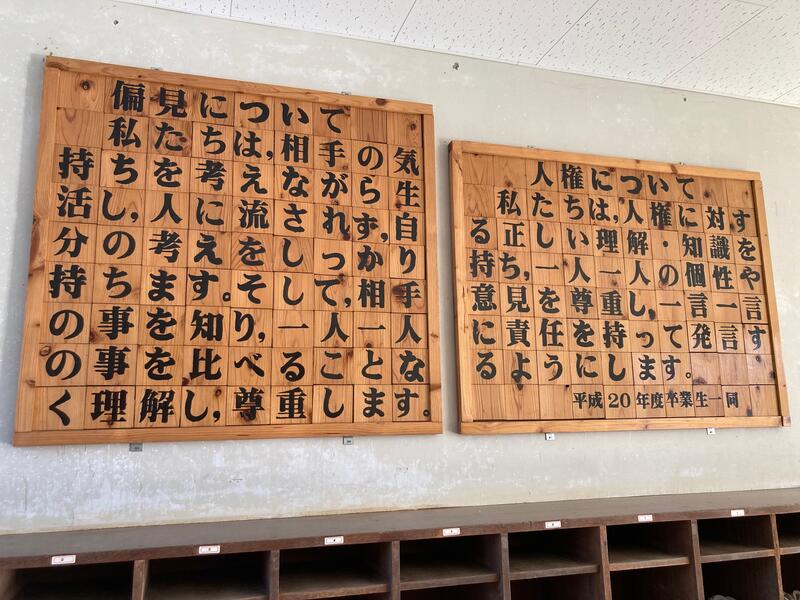 偏見について
私たちは,相手の気
持ちを考えながら生
活し,人に流されず,自
分の考えをしっかり
持ちます。そして,相手
の事を知り,一人一人
の事を比べることな
く理解し,尊重します。
人権について
私たちは,人権に対す
る正しい理解・知識を
持ち,一人一人の個性や
意見を尊重し,一言一言
に責任を持って発言す
るようにします。
平成20年度卒業生一同